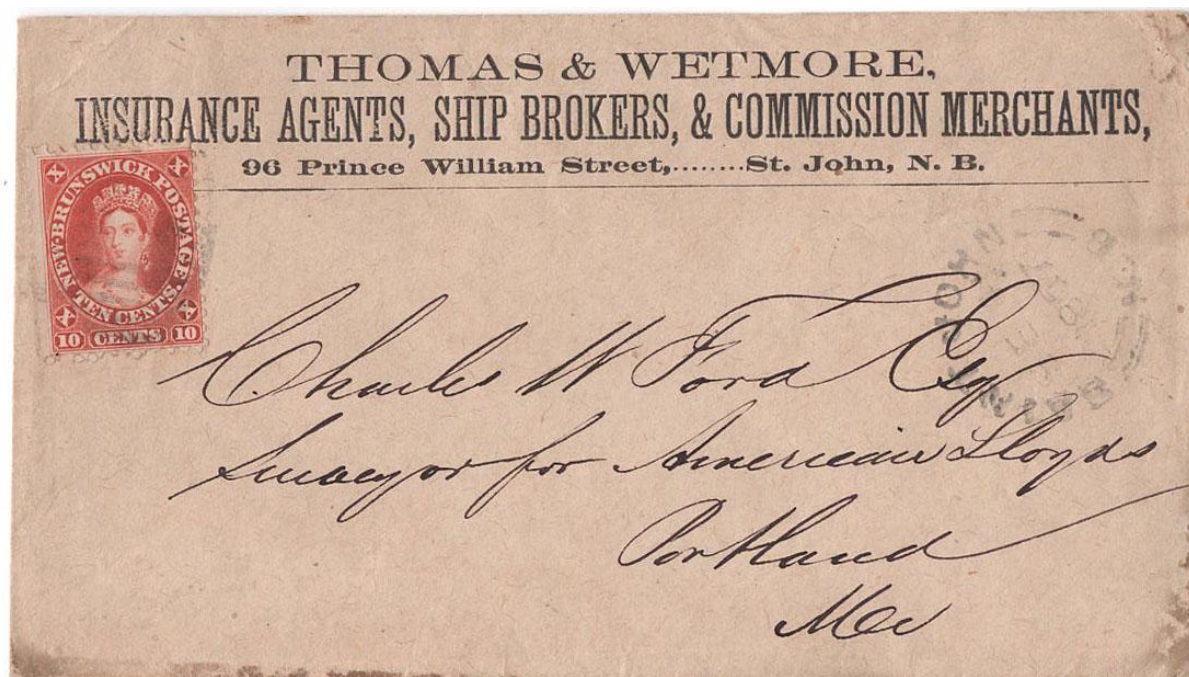 THOMAS & WETMORE,
INSURANCE AGENTS, SHIP BROKERS, & COMMISSION MERCHANTS,
96 Prince William Street,........St. John, N. B.
X X
NEW-BRUNSWICK POSTAGE.
TEN CENTS.
X X
10 CENTS 10
SAINT JOHN
Charles W Ford Esq
Surveyor for American Lloyds
Portland
Me